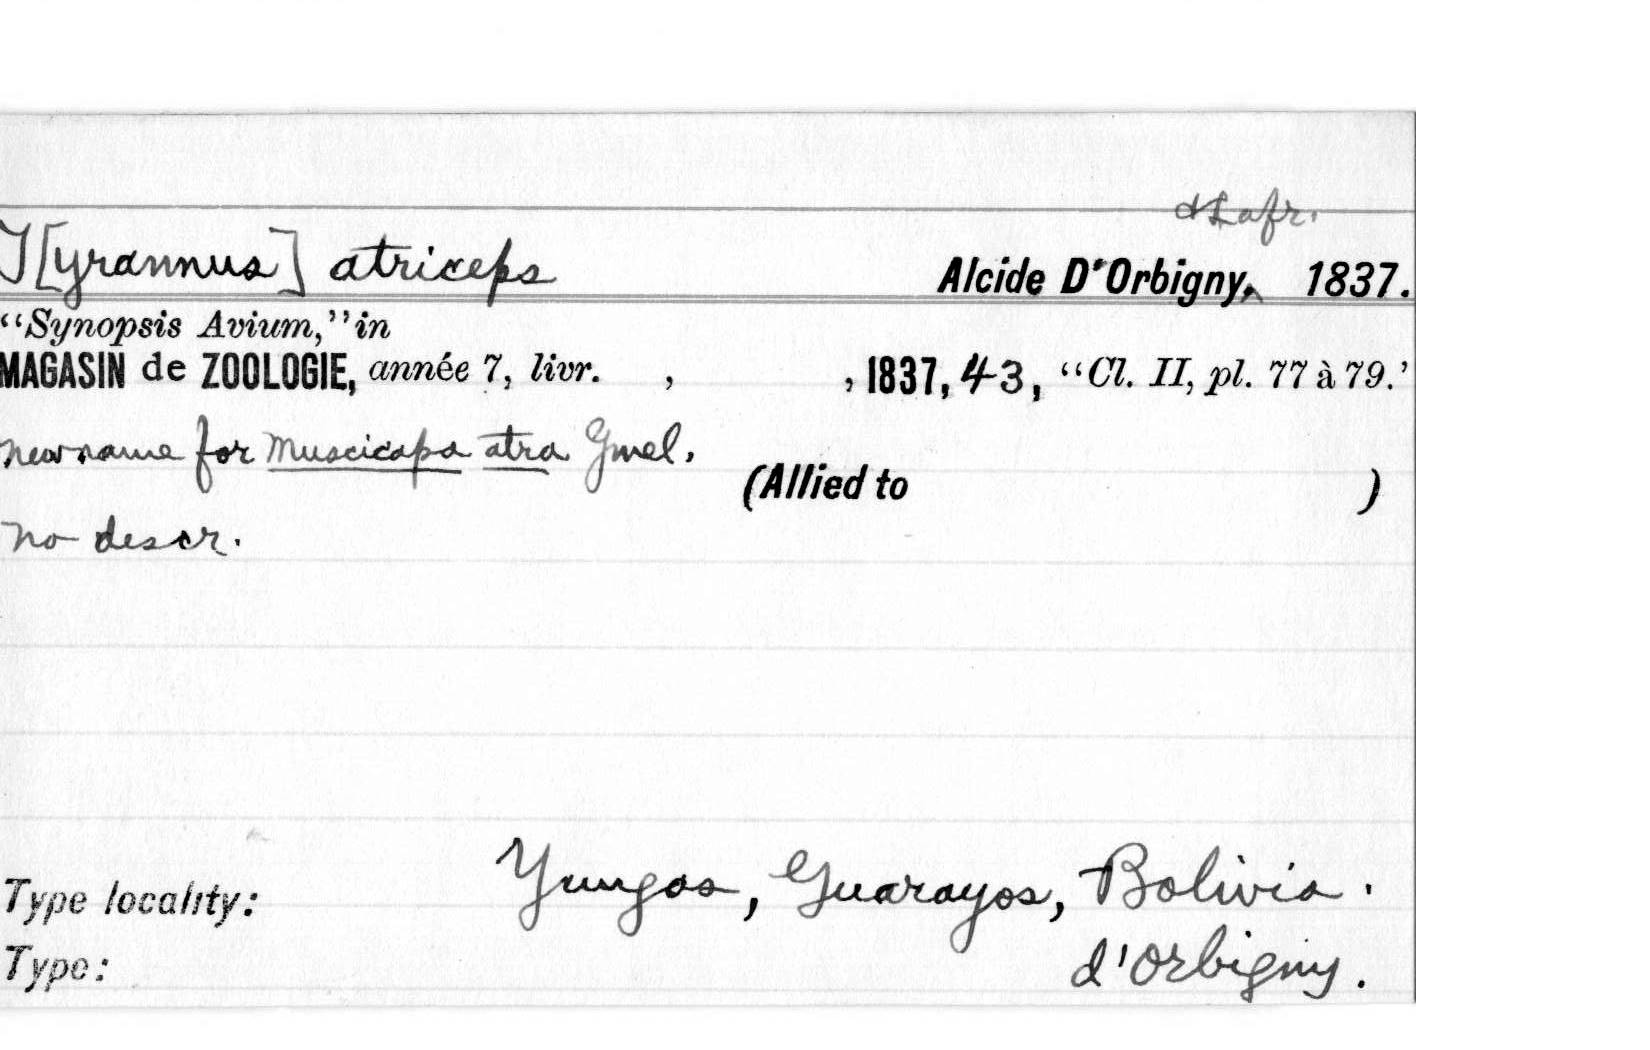 & Lafr.
T[yrannus] atriceps Alcide D'Orbigny, 1837.
“Synopsis Avium,” in
MAGASIN de ZOOLOGIE, année 7, livr. , , 1837, 43, “Cl. II, pl. 77 à 79.’
new name for Muscicapa atra Gmel.
(Allied to )
no descr.
Type locality: Yungas, Guarayos, Bolivia.
Type: d'Orbigny.